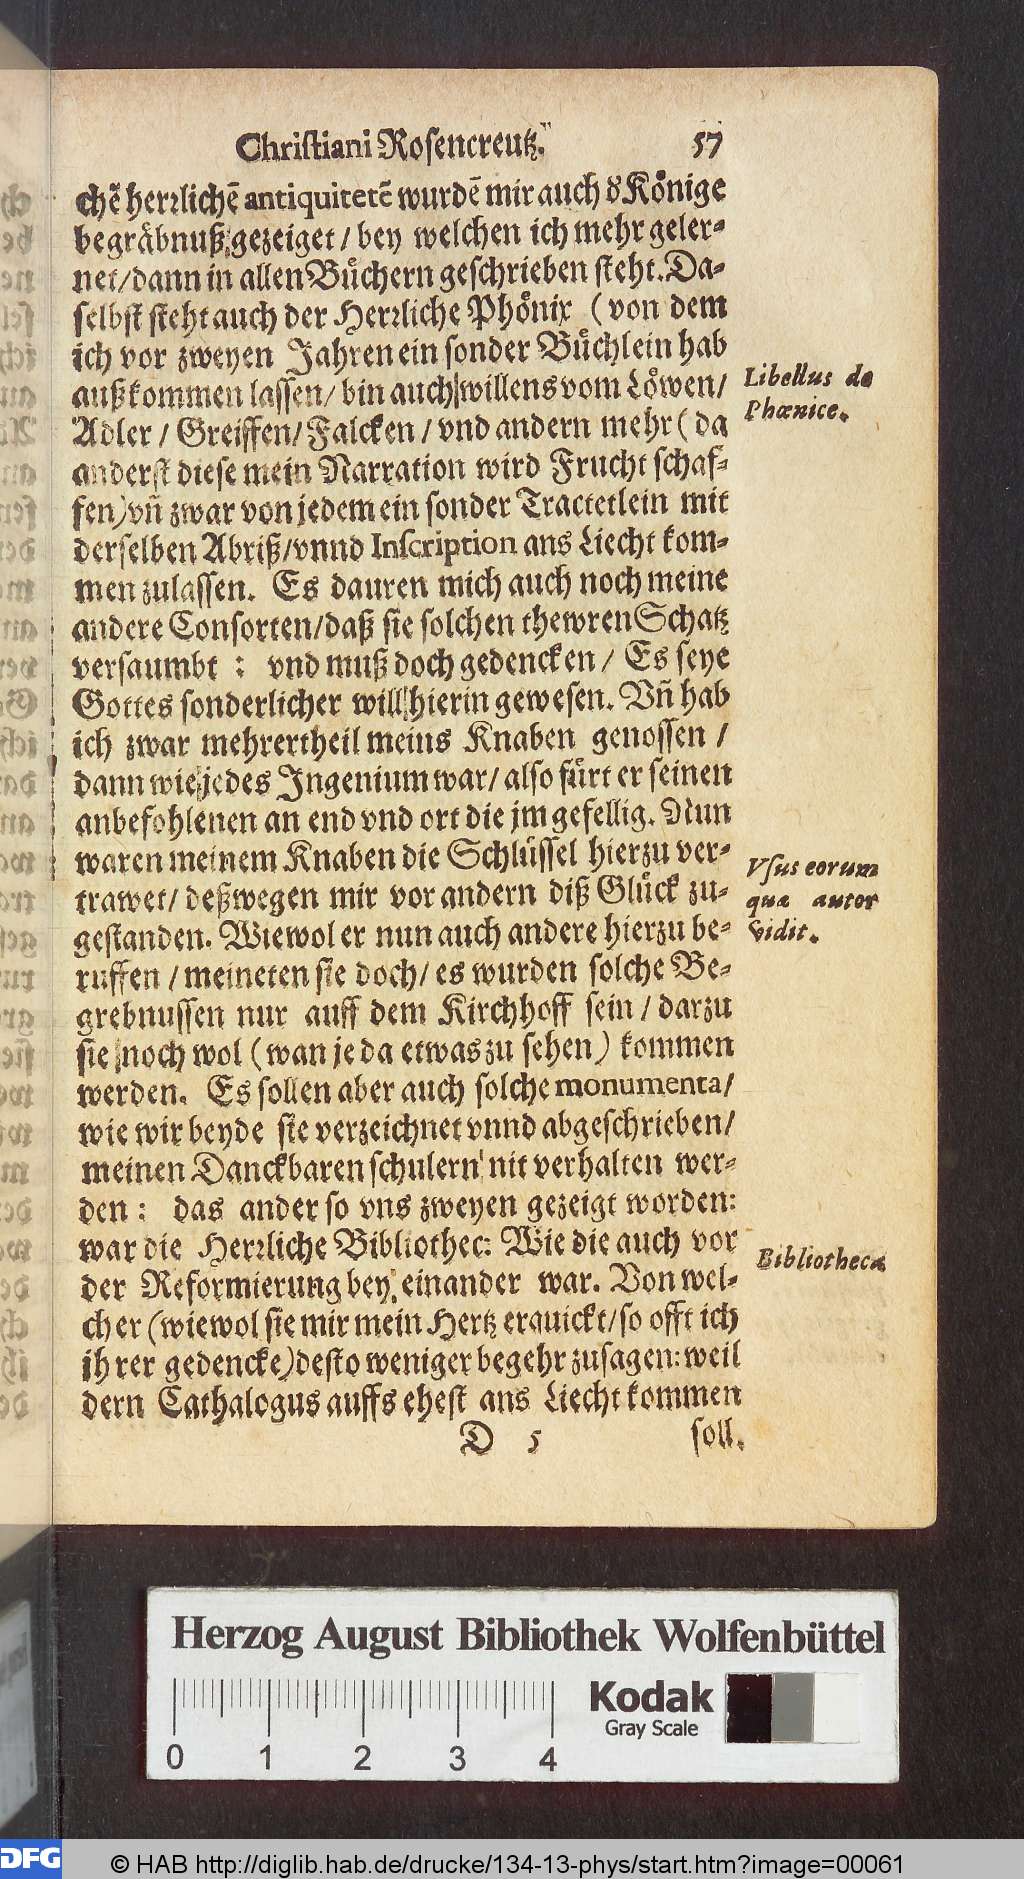 Christiani Rosencreutz. 57
chẽ herꝛlichẽ antiquitetẽ wurdẽ mir auch d' Koͤnige
begraͤbnuß gezeiget / bey welchen ich mehr geler⸗
net/dann in allen Buͤchern geschrieben steht. Da⸗
selbst steht auch der Herꝛliche Phoͤnix (von dem
ich vor zweyen Jahren ein sonder Buͤchlein hab
außkommen lassen/ bin auch willens vom Loͤwen/
Libellus de
Adler / Greiffen/ Falcken / vnd andern mehr (da
Phœnice.
anderst diese mein Narration wird Frucht schaf⸗
fen) vñ zwar von jedem ein sonder Tractetlein mit
derselben Abriß/vnnd Inscription ans Liecht kom⸗
men zulassen. Es dauren mich auch noch meine
andere Consorten/daß sie solchen thewren Schatz
versaumbt : vnd muß doch gedencken / Es seye
Gottes sonderlicher will hierin gewesen. Vñ hab
ich zwar mehrertheil meins Knaben genossen /
dann wie jedes Ingenium war/ also fuͤrt er seinen
anbefohlenen an end vnd ort die jm gefellig. Nun
waren meinem Knaben die Schluͤssel hierzu ver⸗
Vsus eorum
trawet/ deßwegen mir vor andern diß Gluͤck zu⸗
quæ autor
gestanden. Wiewol er nun auch andere hierzu be⸗
vidit.
ruffen / meineten sie doch/ es wurden solche Be⸗
grebnussen nur auff dem Kirchhoff sein / darzu
sie noch wol (wan je da etwas zu sehen) kommen
werden. Es sollen aber auch solche monumenta/
wie wir beyde sie verzeichnet vnnd abgeschrieben/
meinen Danckbaren schulern nit verhalten wer⸗
den : das ander so vns zweyen gezeigt worden:
war die Herꝛliche Bibliothec: Wie die auch vor
Bibliotheca
der Reformierung bey einander war. Von wel⸗
cher (wiewol sie mir mein Hertz erquickt/so offt ich
ihrer gedencke) desto weniger begehr zusagen: weil
dern Cathalogus auffs ehest ans Liecht kommen
D 5 soll.
Herzog August Bibliothek Wolfenbüttel
Kodak
Gray Scale
0 1 2 3 4
DFG © HAB http://diglib.hab.de/drucke/134-13-phys/start.htm?image=00061